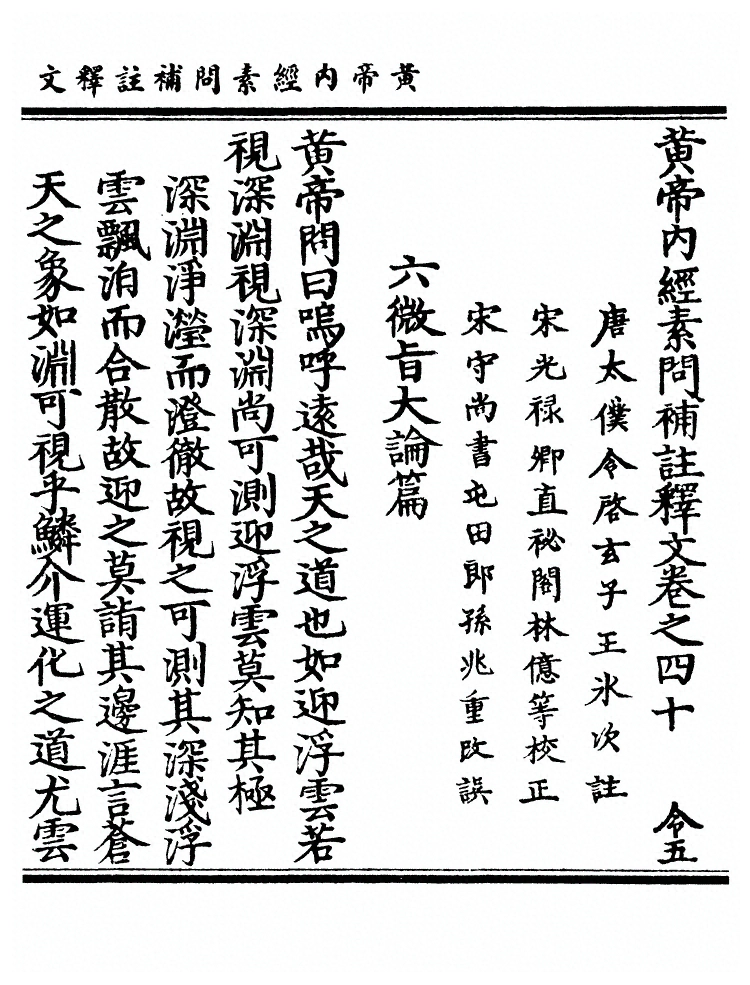 黃帝內經素問補註釋文
黃帝內經素問補註釋文卷之四十 令五
唐太僕令啓玄子王氷次註
宋光祿卿直祕閣林億等校正
宋守尚書屯田郎孫兆重改誤
六微旨大論篇
黃帝問曰嗚呼遠哉天之道也如迎浮雲若
視深淵視深淵尚可測迎浮雲莫知其極
深淵淨瀅而澄徹故視之可測其深淺浮
雲飄泊而合散故迎之莫詣其邊涯言蒼
天之象如淵可視乎鱗介運化之道尤雲